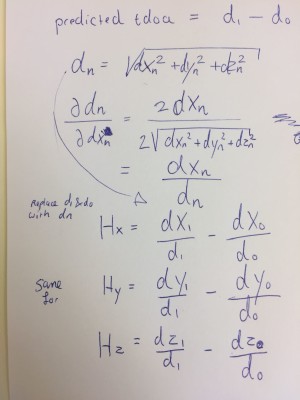 predicted tdoa = d₁ - d₀
dₙ = √(dxₙ² + dyₙ² + dzₙ²)
∂dₙ / ∂dxₙ = 2dxₙ / 2√(dxₙ² + dyₙ² + dzₙ²)
= dxₙ / dₙ
Replace d₁&d₀
with dn
Hx = dx₁ / d₁ - dx₀ / d₀
Same
for
Hy = dy₁ / d₁ - dy₀ / d₀
Hz = dz₁ / d₁ - dz₀ / d₀